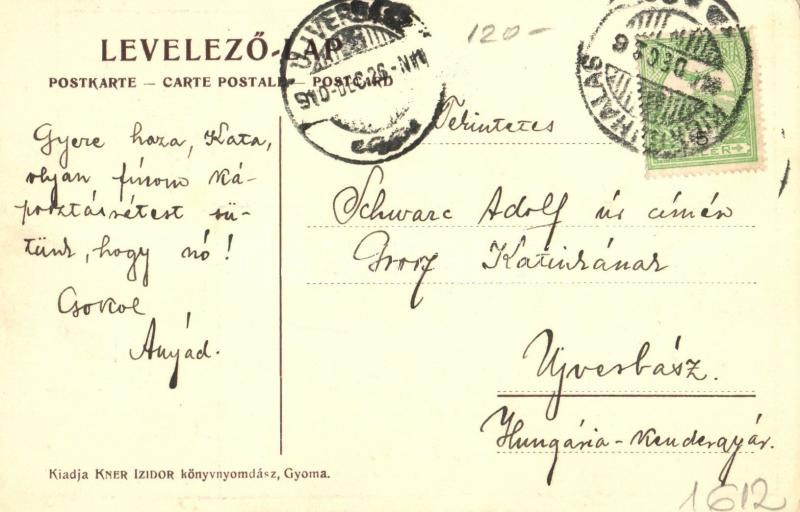 LEVELEZŐ-LAP
POSTKARTE — CARTE POSTALE — POSTCARD
120-
910 DEC. 26
Gyere haza, Kata,
olyan finom ká-
posztásrétest sü-
tünk, hogy nó!
Csokol
Anyád.
Tekintetes
Schwarc Adolf úr címén
Grosz Katinkának
Ujverbász.
Hungária-kendergyár.
Kiadja KNER IZIDOR könyvnyomdász, Gyoma.
1612